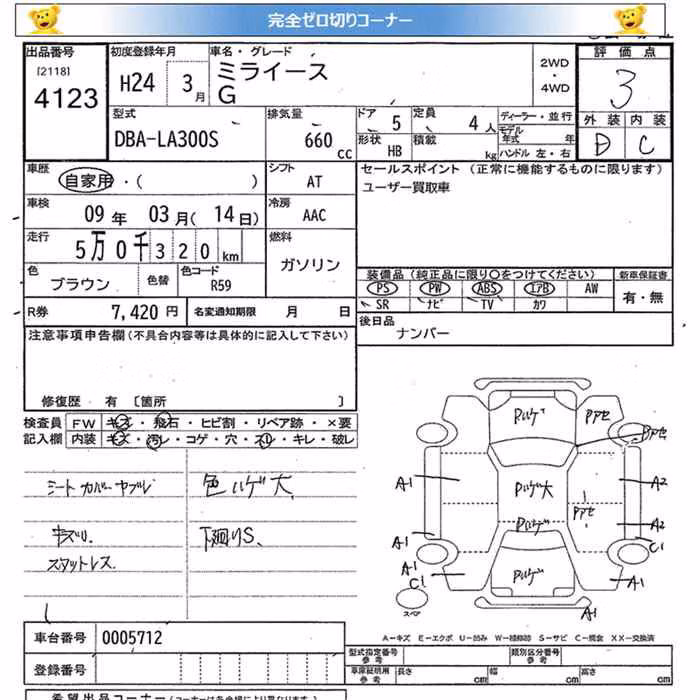 完全ゼロ切りコーナー
出品番号
[2118]
4123
初度登録年月
H24 3月
車名・グレード
ミライース
G
2WD
・
4WD
評価点
3
外装 内装
D C
型式
DBA-LA300S
排気量
660 cc
ドア 5
定員 4人
形状 HB
積載 kg
ディーラー・並行
モデル年式 年
ハンドル 左・右
車歴
自家用・( )
シフト
AT
車検
09年 03月(14日)
冷房
AAC
走行
5万0千320km
燃料
ガソリン
色
ブラウン
色替
色コード
R59
R券 7,420円
名変通知期限 月 日
セールスポイント (正常に機能するものに限ります)
ユーザー買取車
装備品(純正品に限り○をつけてください)
新車保証書
PS PW ABS エアB AW
SR ナビ TV カワ
有・無
後日品
ナンバー
注意事項申告欄(不具合内容等は具体的に記入して下さい)
修復歴 有 [箇所 ]
検査員
記入欄
FW キズ・飛石・ヒビ割・リペア跡・×要
内装 キズ・汚レ・コゲ・穴・スレ・キレ・破レ
シートカバーヤブレ
色ハゲ大
キズ凹
下廻りS、
スタットレス
Pハゲ
Pアセ
Pアセ
A1
Pハゲ大
Pアセ
A2
Pハゲ
A2
A1
C1
A1
C1
Pハゲ
A1
A1
スペア
A—キズ E—エクボ U—凹み W—補修跡 S—サビ C—腐食 XX—交換済
車台番号 0005712
登録番号
型式指定番号
参考
類別区分番号
参考
車庫証明用
参考
長さ cm
幅 cm
高さ cm
希望出品コーナー